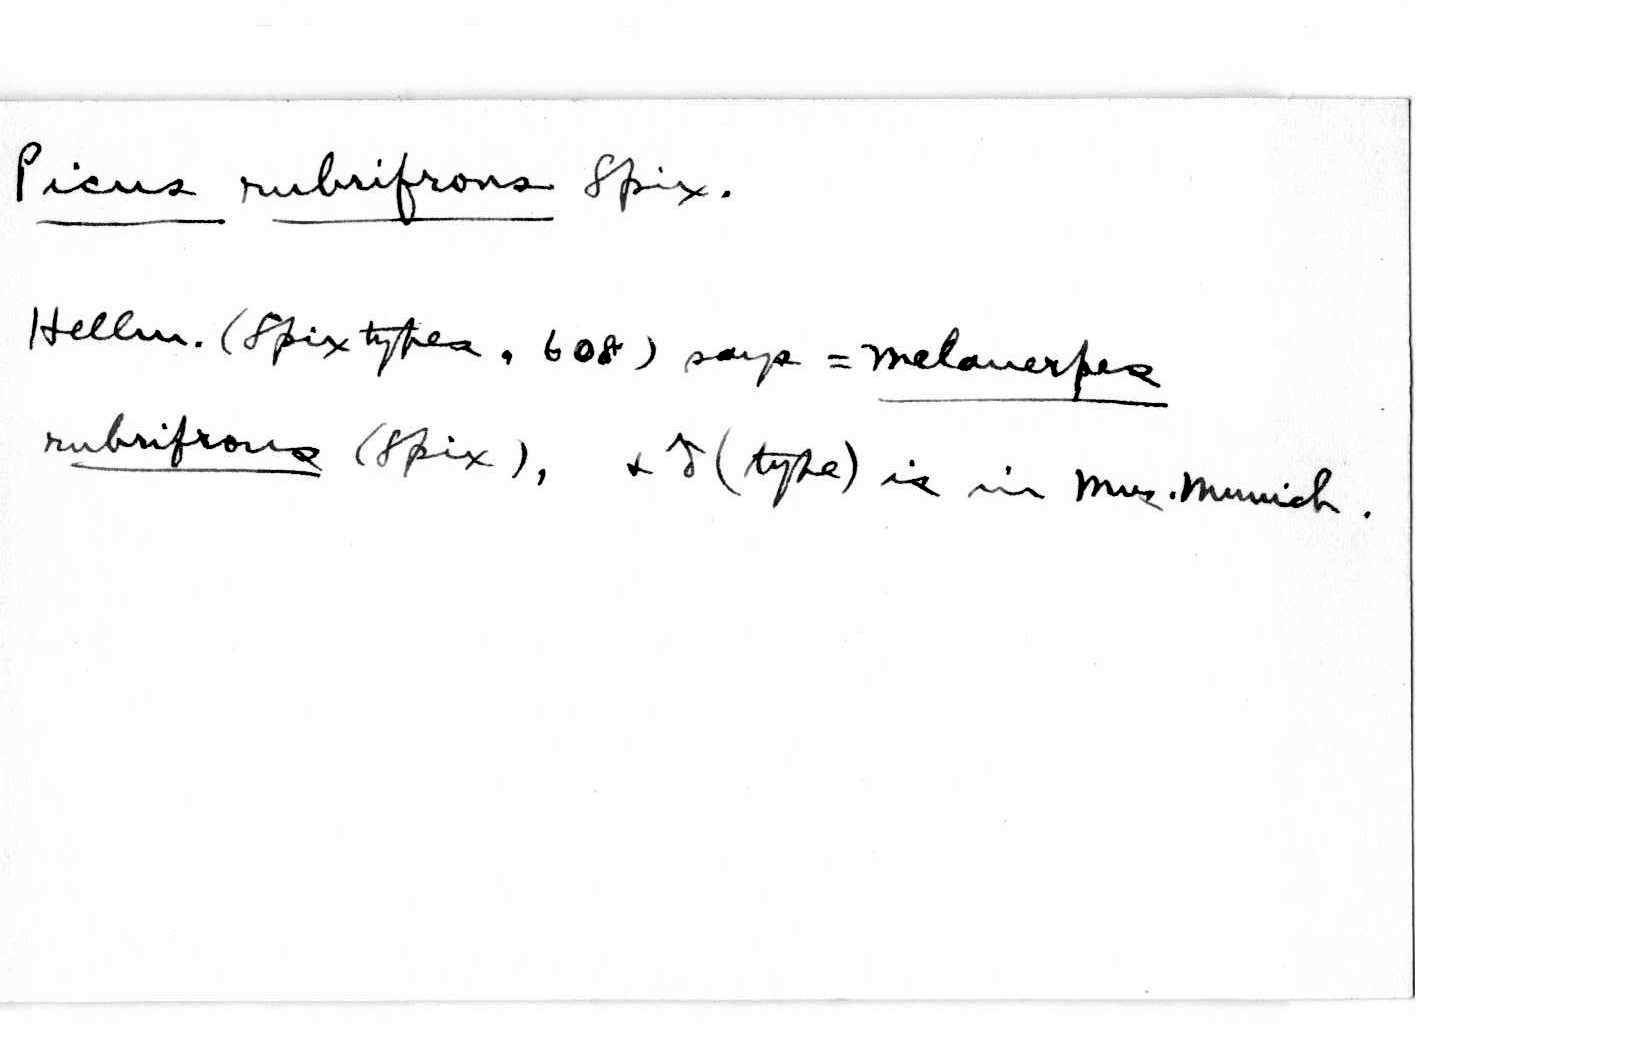 Picus rubrifrons Spix.
Hellm. (Spix types, 608) says = Melanerpes
rubrifrons (Spix), + ♂ (type) is in Mus. Munich.